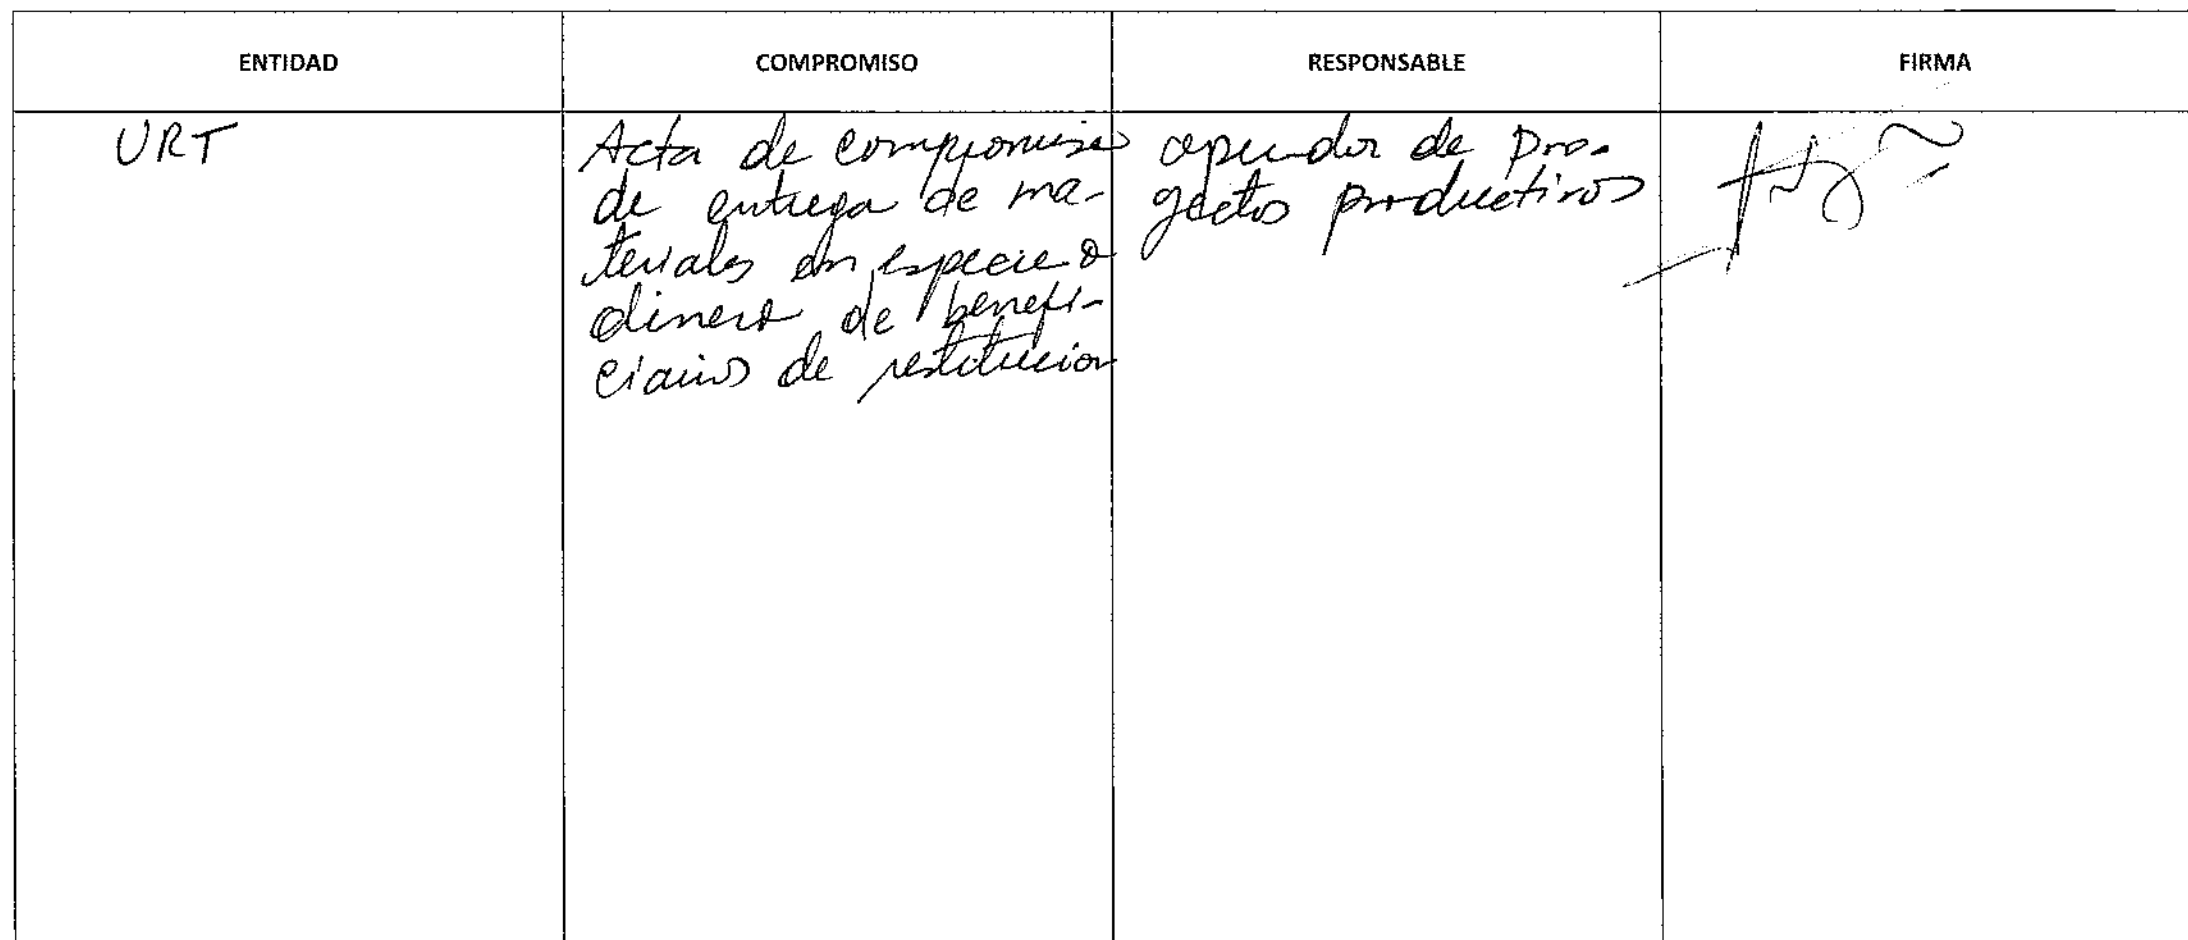 ENTIDAD COMPROMISO RESPONSABLE FIRMA
URT
Acta de compromiso
de entrega de ma-
teriales en especie o
dinero de benefi-
ciarios de restitucion
operador de pro-
yectos productivos